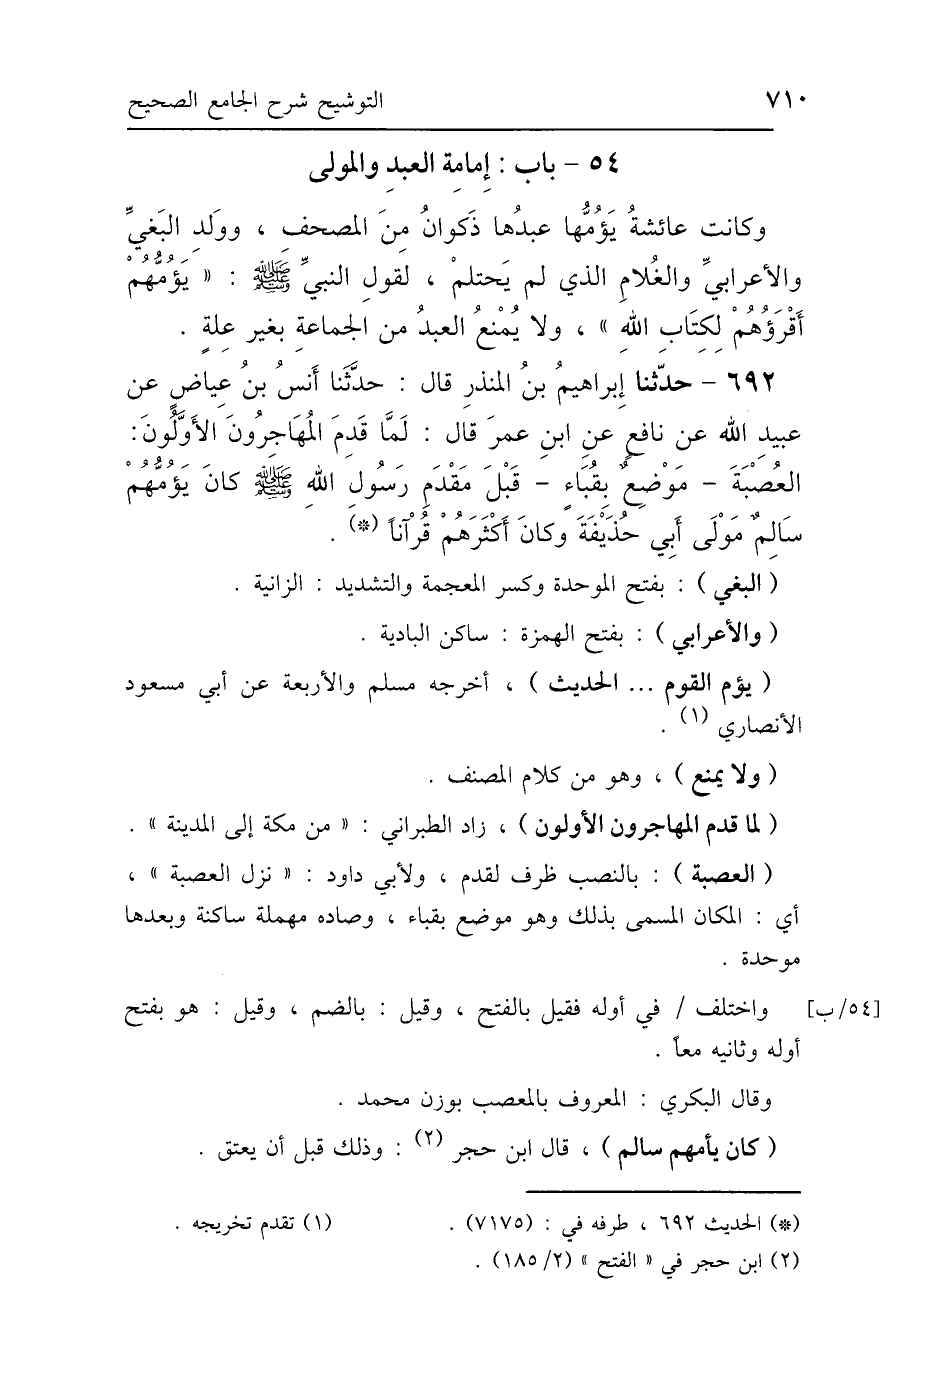 ٧١٠ التوشيح شرح الجامع الصحيح
٥٤ - باب : إمامة العبد والمولى
وكانت عائشةُ يَؤُمُّها عبدُها ذَكوانُ مِنَ المصحفِ ، وولَدِ البَغيِّ
والأعرابيِّ والغُلامِ الذي لم يَحتلمْ ، لقولِ النبيِّ ﷺ : « يَؤُمُّهُمْ
أَقْرَؤُهُمْ لِكِتَابِ اللهِ » ، ولا يُمْنعُ العبدُ من الجماعةِ بغيرِ علةٍ .
٦٩٢ - حدّثنا إبراهيمُ بنُ المنذرِ قال : حدَّثَنا أنَسُ بنُ عياضٍ عن
عبيدِ الله عن نافعٍ عنِ ابنِ عمرَ قال : لَمَّا قَدِمَ المُهَاجِرُونَ الأوَّلُونَ:
العُصْبَةَ - مَوْضِعٌ بِقُبَاءٍ - قَبْلَ مَقْدَمِ رَسُولِ اللهِ ﷺ كانَ يَؤُمُّهُمْ
سَالِمٌ مَوْلَى أَبِي حُذَيْفَةَ وكانَ أَكْثَرَهُمْ قُرْآناً (*) .
( البغي ) : بفتح الموحدة وكسر المعجمة والتشديد : الزانية .
( والأعرابي ) : بفتح الهمزة : ساكن البادية .
( يؤم القوم ... الحديث ) ، أخرجه مسلم والأربعة عن أبي مسعود
الأنصاري (١) .
( ولا يمنع ) ، وهو من كلام المصنف .
( لما قدم المهاجرون الأولون ) ، زاد الطبراني : « من مكة إلى المدينة » .
( العصبة ) : بالنصب ظرف لقدم ، ولأبي داود : « نزل العصبة » ،
أي : المكان المسمى بذلك وهو موضع بقباء ، وصاده مهملة ساكنة وبعدها
موحدة .
[٥٤/ب] واختلف / في أوله فقيل بالفتح ، وقيل : بالضم ، وقيل : هو بفتح
أوله وثانيه معاً .
وقال البكري : المعروف بالمعصب بوزن محمد .
( كان يأمهم سالم ) ، قال ابن حجر (٢) : وذلك قبل أن يعتق .
(*) الحديث ٦٩٢ ، طرفه في : (٧١٧٥) . (١) تقدم تخريجه .
(٢) ابن حجر في « الفتح » (١٨٥/٢) .